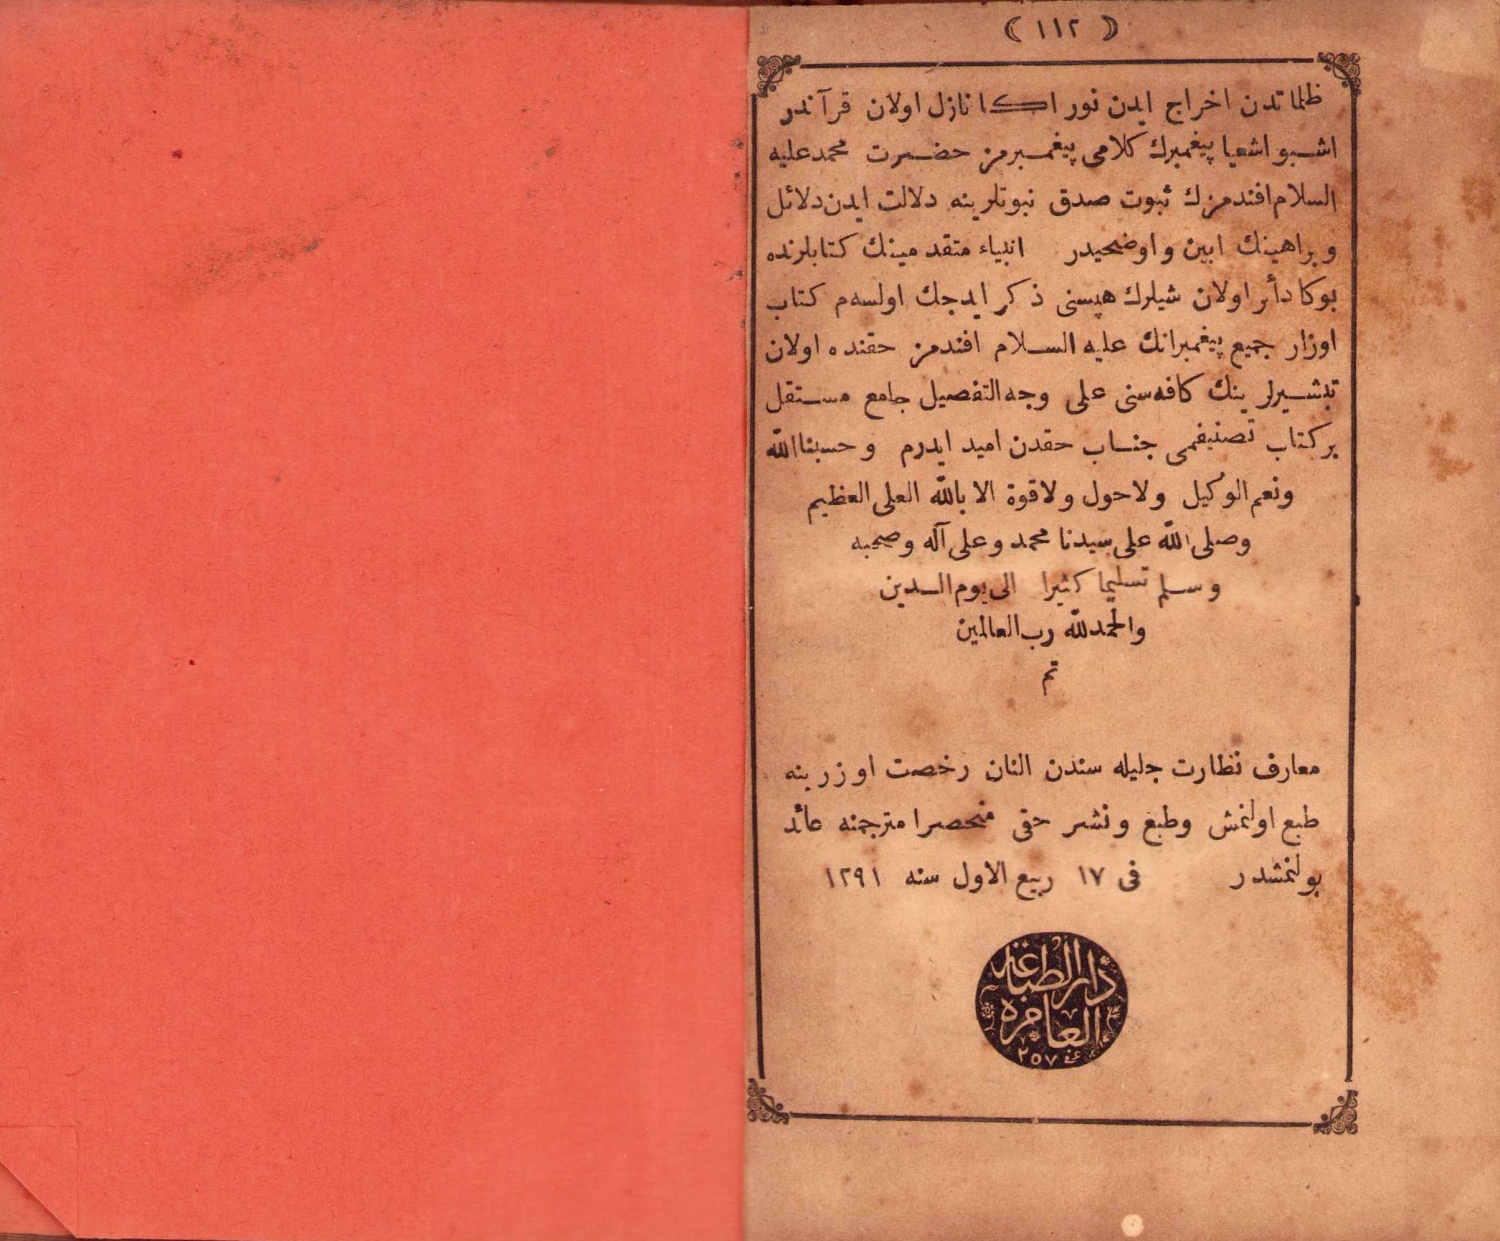 ( ١١٢ )
ظلماتدن اخراج ايدن نور اكا نازل اولان قرآندر
اشبو اشعيا پيغمبرك كلامى پيغمبرمز حضرت محمد عليه
السلام افندمزك ثبوت صدق نبوتلرينه دلالت ايدن دلائل
وبراهينك ابين واوضحيدر انبياء متقدمينك كتابلرنده
بوكا دأر اولان شيلرك هپسنى ذكر ايدجك اولسهم كتاب
اوزار جميع پيغمبرانك عليه السلام افندمز حقنده اولان
تبشيرلرينك كافهسنى على وجه التفصيل جامع مستقل
بركتاب تصنيفمى جناب حقدن اميد ايدرم وحسبنا الله
ونعم الوكيل ولاحول ولاقوة الا بالله العلى العظيم
وصلى الله على سيدنا محمد وعلى آله وصحبه
وسلم تسليما كثيرا الى يوم الدين
والحمد لله رب العالمين
تم
معارف نظارت جليله سندن النان رخصت اوزرينه
طبع اولنمش وطبغ ونشر حقى منحصرا مترجمنه عائد
بولنمشدر فى ١٧ ربيع الاول سنه ١٢٩١
دار الطباعة
العامره
٢٥٧